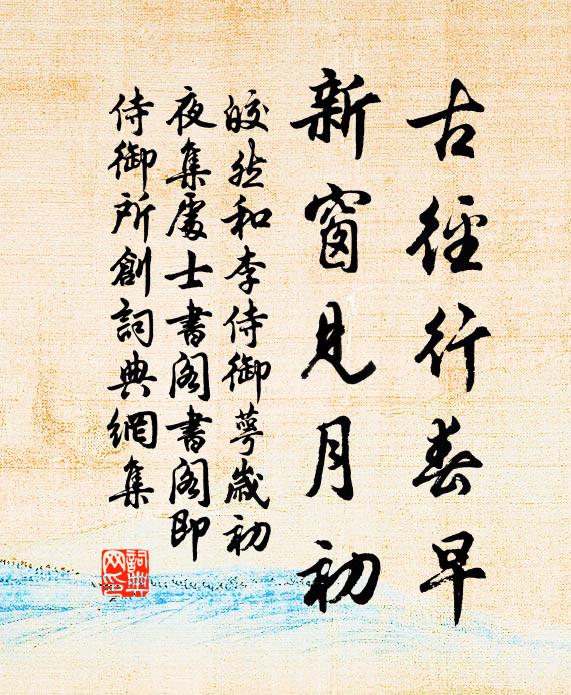 古徑行春早
新窗見月初
皎然和李侍御萼歲初
夜集處士書閣書閣即
侍御所創詞典網集
詞典
网印